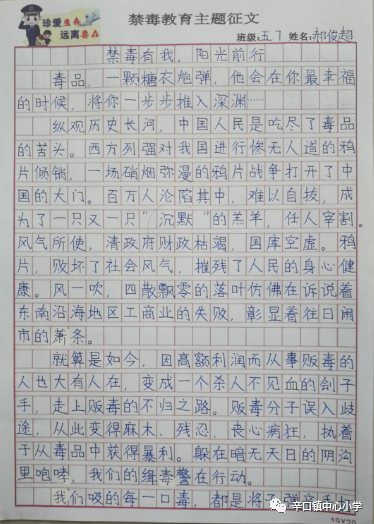 珍爱生命
远离毒品
禁毒教育主题征文
班级:五7 姓名:郝俊超
禁毒有我，阳光前行
毒品，一颗糖衣炮弹，他会在你最幸福
的时候，将你一步步推入深渊……
纵观历史长河，中国人民是吃尽了毒品
的苦头。西方列强对我国进行惨无人道的鸦
片倾销，一场硝烟弥漫的鸦片战争打开了中
国的大门。百万人沦陷其中，难以自拔，成
为了一只又一只“沉默”的羔羊，任人宰割。
风气所使，清政府财政枯竭，国库空虚。鸦
片，败坏了社会风气，摧残了人民的身心健
康。风一吹，四散飘零的落叶仿佛在诉说着
东南沿海地区工商业的失败，彰显着往日闹
市的萧条。
就算是如今，因高额利润而从事贩毒的
人也大有人在，变成一个杀人不见血的刽子
手，走上贩毒的不归之路。贩毒分子误入歧
途，从此变得麻木，残忍，丧心病狂，执着
于从毒品中获得暴利。躲在暗无天日的阴沟
里咆哮，我们的缉毒警在行动。
我们吸的每一口毒，都是将子弹
辛口镇中心小学